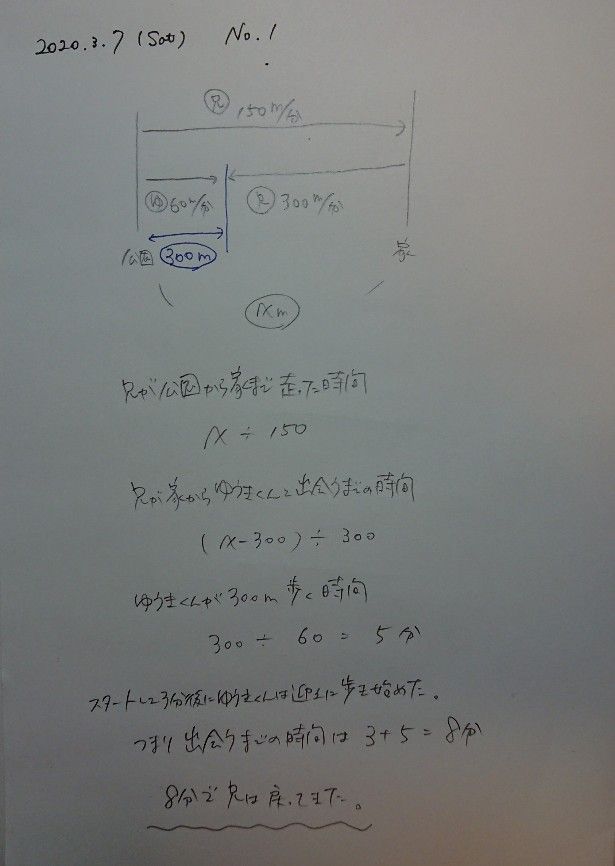 2020.3.7 (Sat) No.1
兄 150m/分
ゆ 60m/分 兄 300m/分
公園 300m 家
xm
兄が公園から家まで走った時間
x ÷ 150
兄が家からゆうまくんと出会うまでの時間
(x-300) ÷ 300
ゆうまくんが300m 歩く時間
300 ÷ 60 = 5 分
スタートして3分後にゆうまくんは迎えに歩き始めた。
つまり 出会うまでの時間は 3+5=8分
8分で兄は戻ってきた。